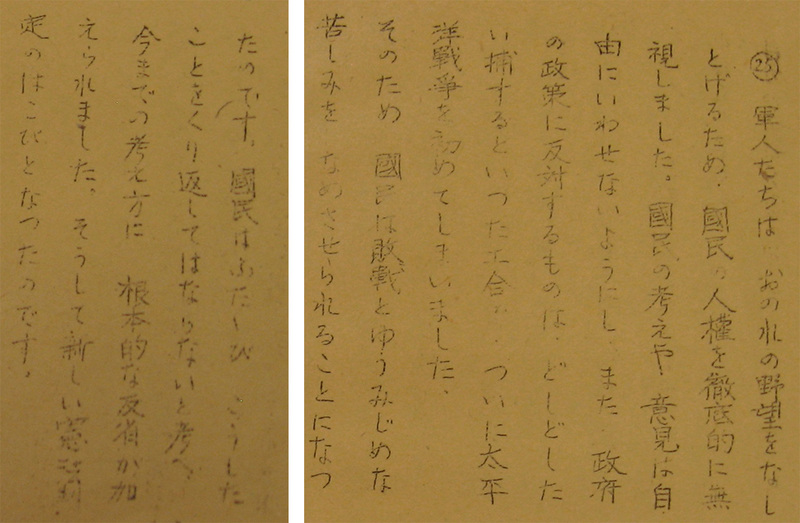 ㉕ 軍人たちは、おのれの野望をなし
とげるため、國民の人權を徹底的に無
視しました。國民の考えや、意見は自
由にいわせないようにし、また、政府
の政策に反対するものは、どしどした
い捕するといった工合で、ついに太平
洋戰爭を初めてしまいました、
そのため 國民は敗戰とゆうみじめな
苦しみを なめさせられることになつ
たのです。國民はふたたび こうした
ことをくり返してはならないと考へ、
今までの考え方に 根本的な反省が加
えられました。そうして新しい憲法制
定のはこびとなつたのです。